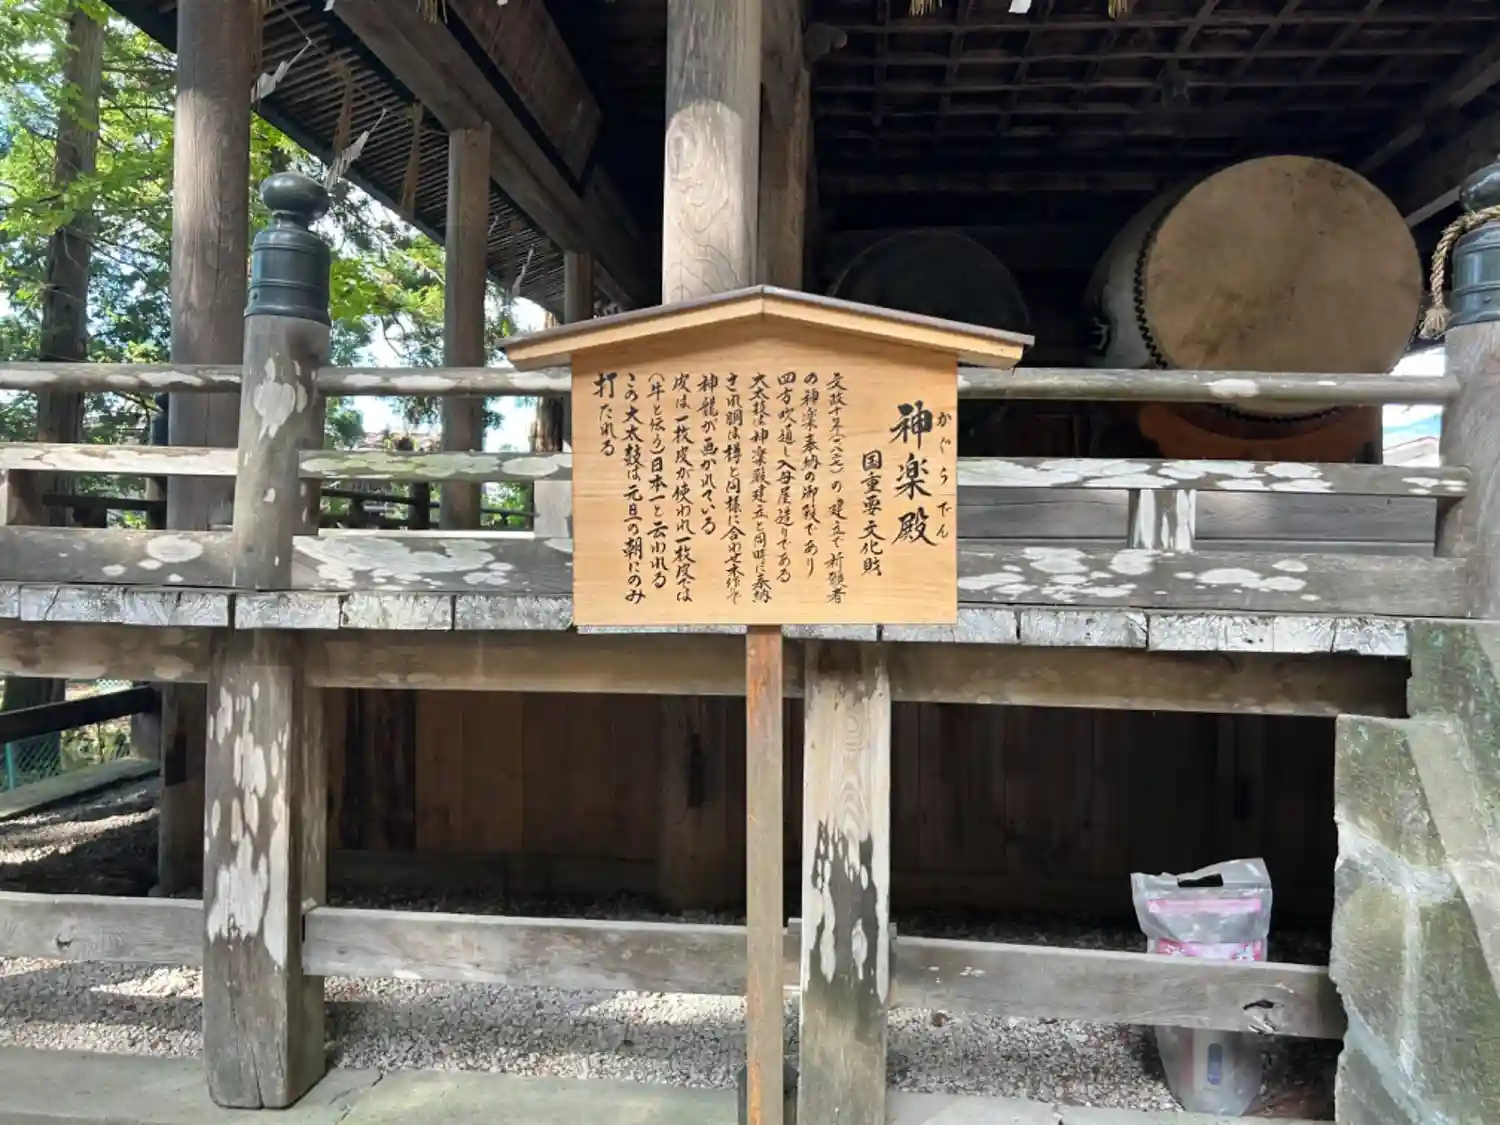 神楽殿
かぐらでん
国重要文化財
文政十年(一八二七)の建立で祈願者
の神楽奉納の御殿であり
四方吹通し入母屋造りである
大太鼓は神楽殿建立と同時に奉納
され胴は樽と同様に合わせ木作で
神龍が画かれている
皮は一枚皮が使われ一枚皮では
(牛と伝う)日本一と云われる
この大太鼓は元旦の朝にのみ
打たれる